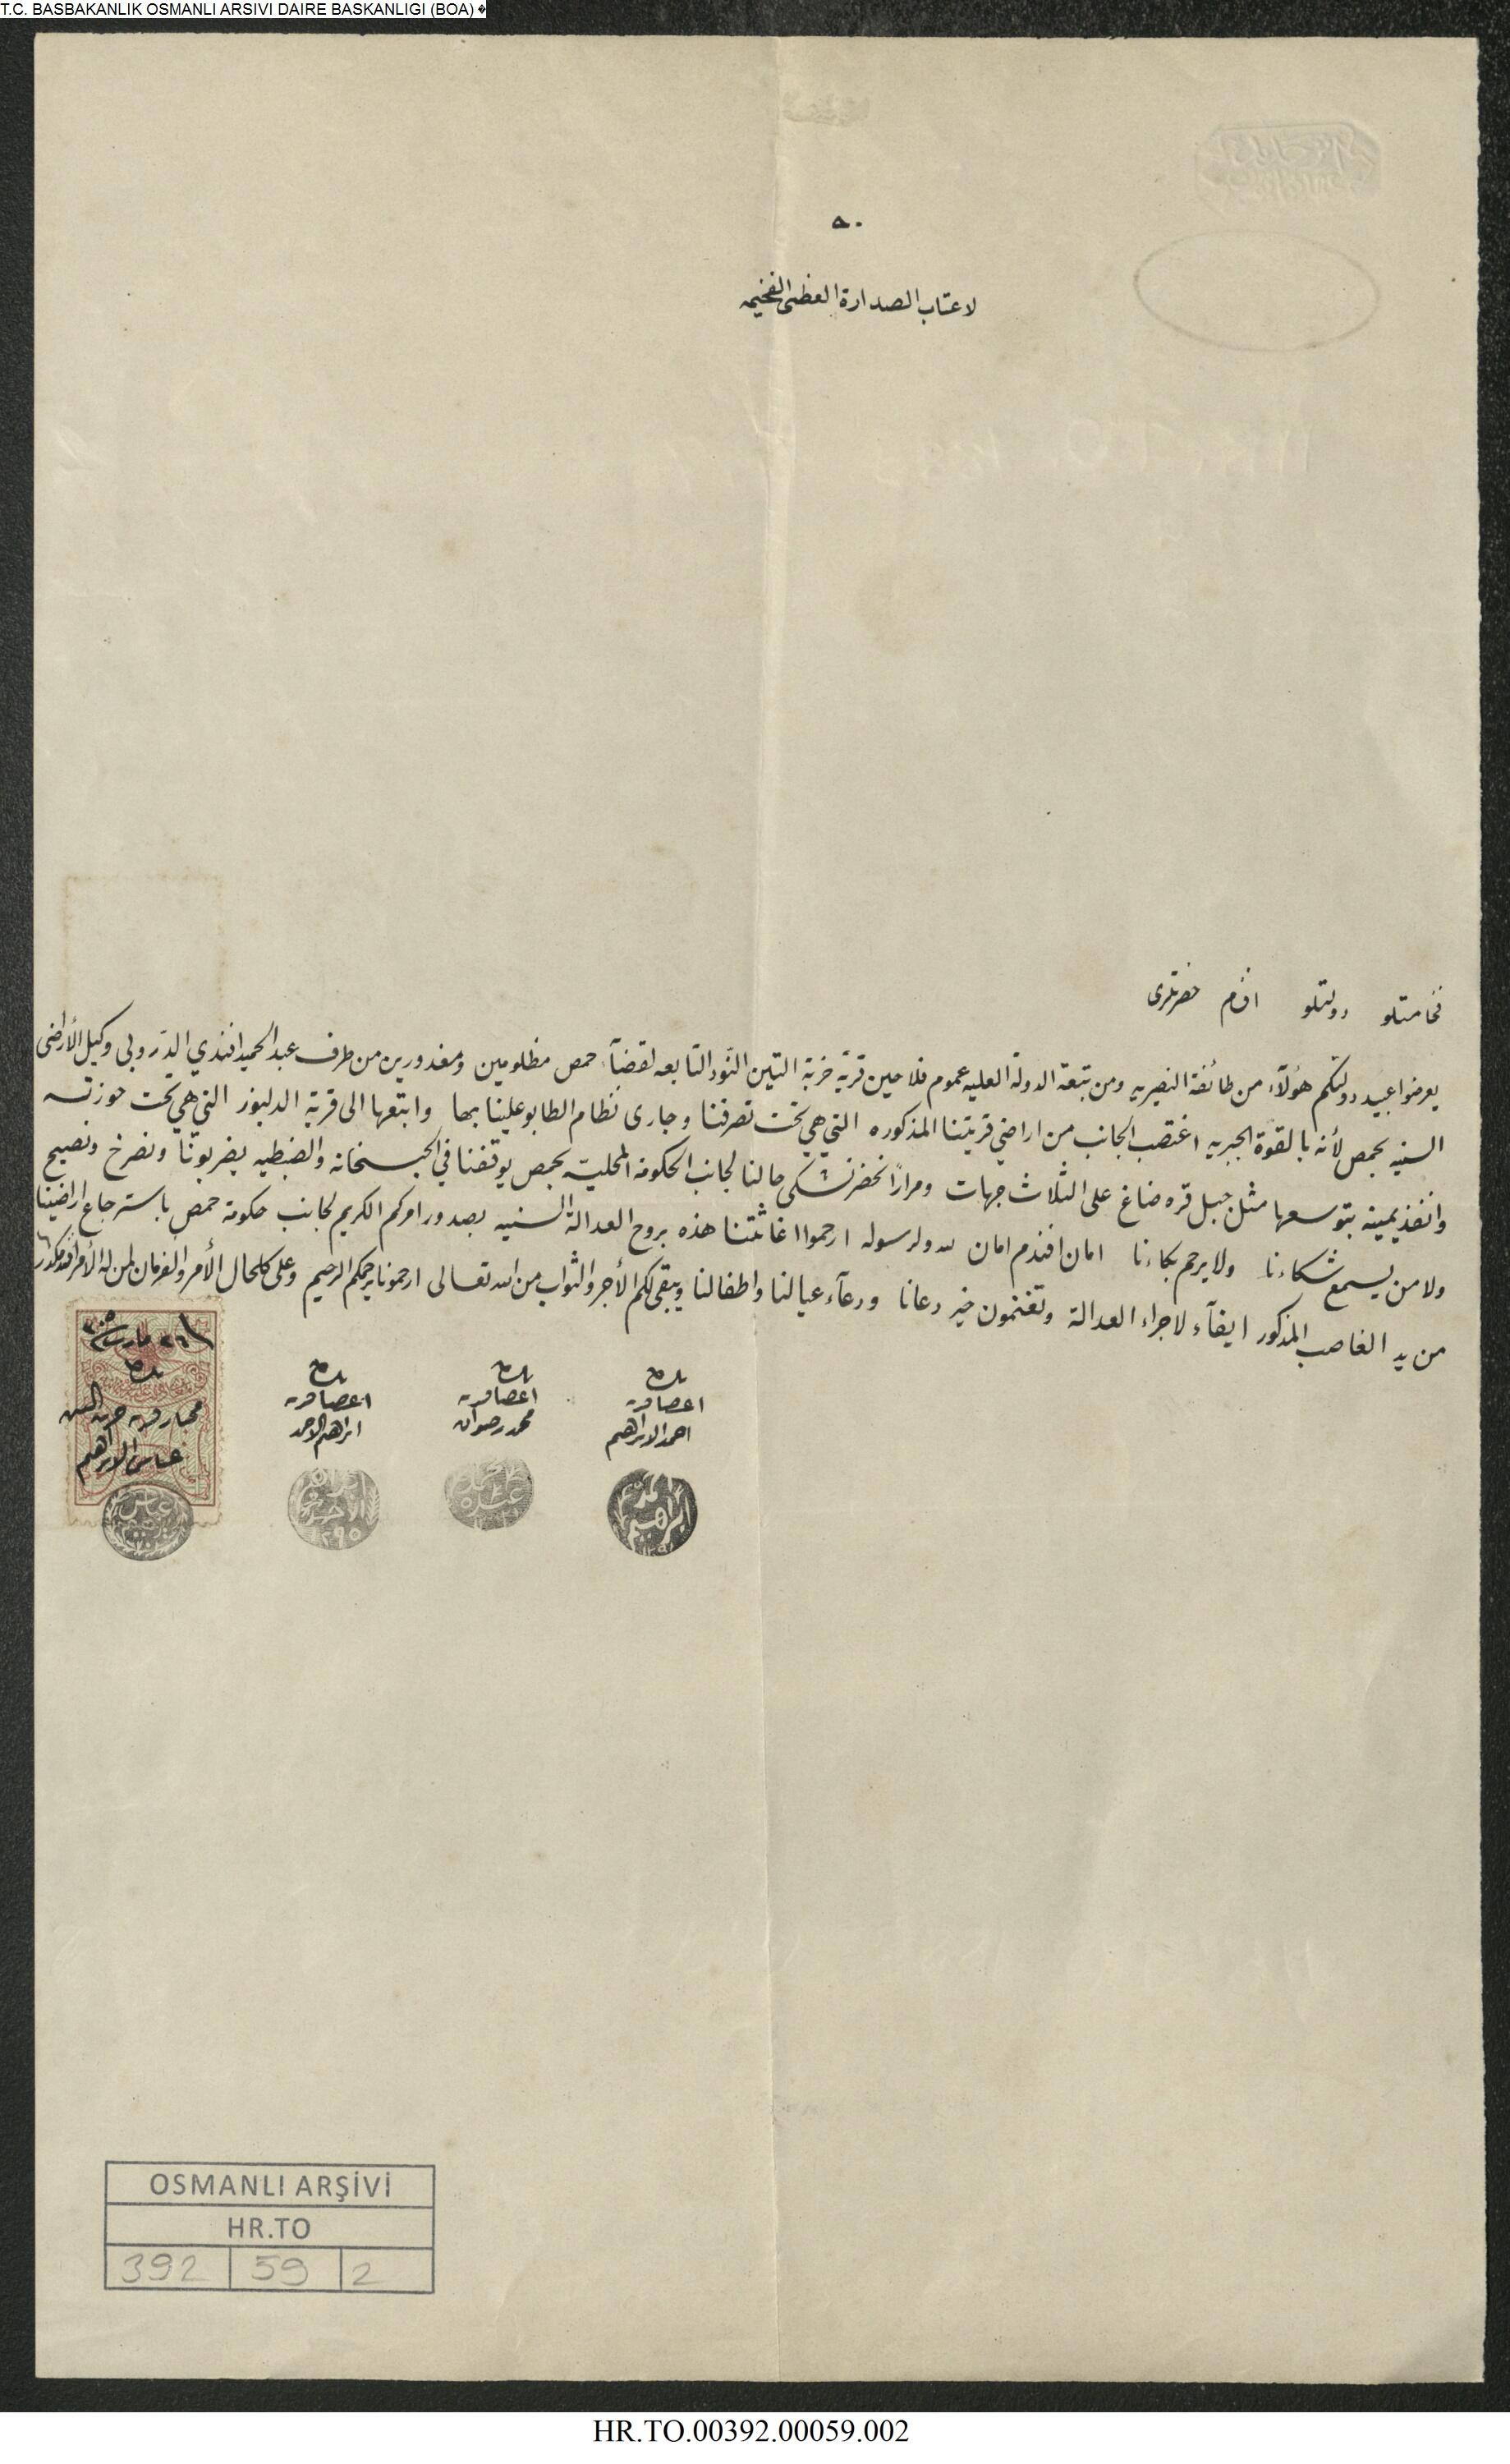 T.C. BASBAKANLIK OSMANLI ARSIVI DAIRE BASKANLIGI (BOA)
لاعتاب الصدارة العظمى الفخيمه
فخامتلو دولتلو افندم حضرتلرى
يعرضوا عبيد دولتكم هؤلآء من طائفة النصيريه ومن تبعة الدولة العليه عموم فلاحين قرية خربة التين النّور التابعه لقضآء حمص مظلومين ومغدورين من طرف عبد الحميد افندي الدروبي وكيل الأراضى
السنيه بحمص لأنه بالقوة الجبريه اغتصب الجانب من اراضي قريتنا المذكوره التي هي تحت تصرفنا وجارى نظام الطابو علينا بها واتبعها الى قرية الدلبوز التي هي تحت حوزته
وانفذ يمينه بتوسعها مثل جبل قره ضاغ على الثلاث جهات ومراراً نحضر نشتكى حالنا لجانب الحكومة المحلية بحمص يوقفنا في الحبسخانه والضبطيه يضربوننا ونصرخ ونصيح
ولا من يسمع شكاءنا ولا يرحم بكاءنا امان افندم امان لله ولرسوله ارحموا اغاثتنا هذه بروح العدالة السنيه بصدور امركم الكريم لجانب حكومة حمص باسترجاع اراضينا
من يد الغاصب المذكور ايفآء لاجراء العدالة وتغتنمون خير دعانا ودعآء عيالنا واطفالنا ويبقى لكم الأجر والثواب من الله تعالى ارحمونا يرحمكم الرحيم وعلى كلحال الأمر والفرمان لمن له الأمر افندم
٢٦ مارت ٣٠٥
بنده بنده بنده بنده
اعضا قريه اعضا قريه اعضا قريه مختار قريه خربة التين
احمد الابراهيم محمد رضوان ابراهيم الاحمد عباس الابراهيم
OSMANLI ARŞİVİ
HR.TO
392 59 2
HR.TO.00392.00059.002